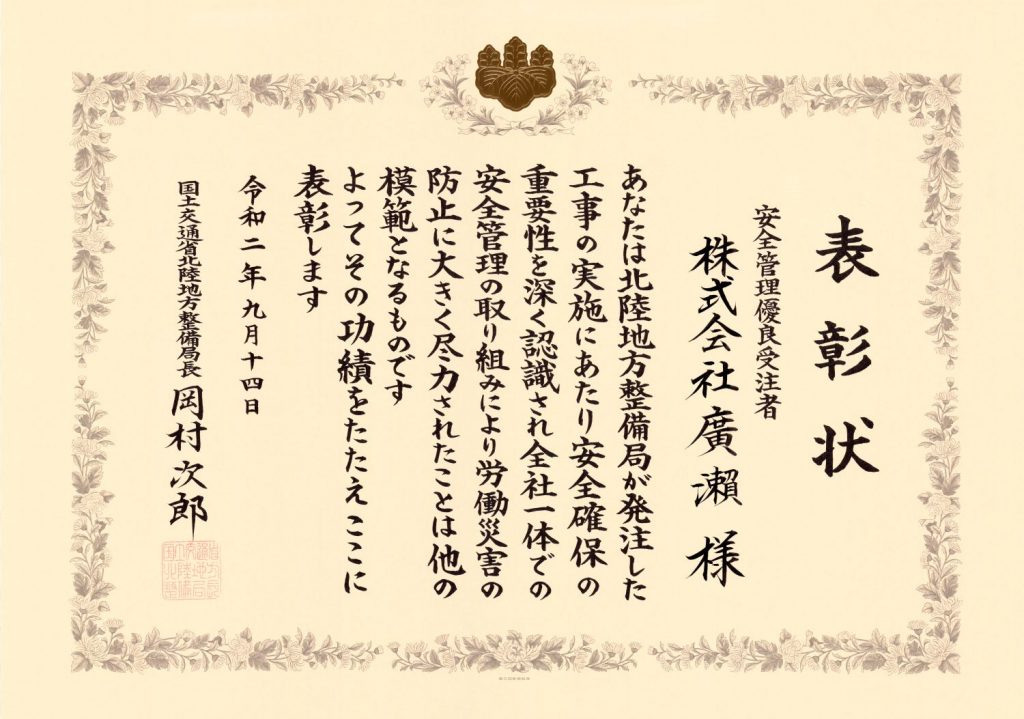 表彰状
安全管理優良受注者
株式会社廣瀨 様
あなたは北陸地方整備局が発注した
工事の実施にあたり安全確保の
重要性を深く認識され全社一体での
安全管理の取り組みにより労働災害の
防止に大きく尽力されたことは他の
模範となるものです
よってその功績をたたえここに
表彰します
令和二年九月十四日
国土交通省北陸地方整備局長 岡村次郎